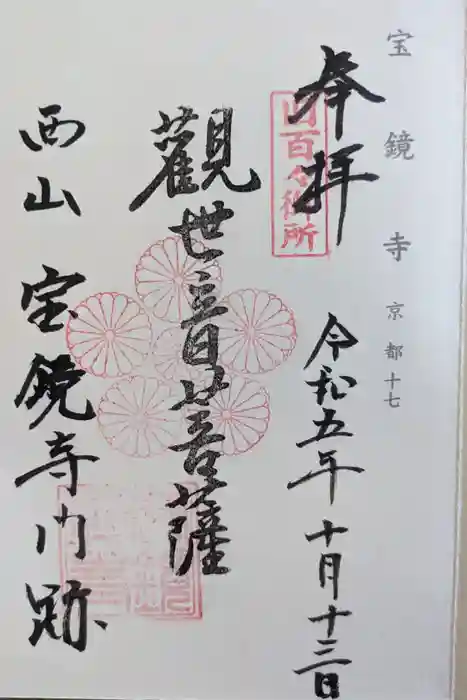 宝鏡寺 京都十七
奉拝
百々御所
令和五年 十月十三日
觀世音菩薩
西山 宝鏡寺門跡